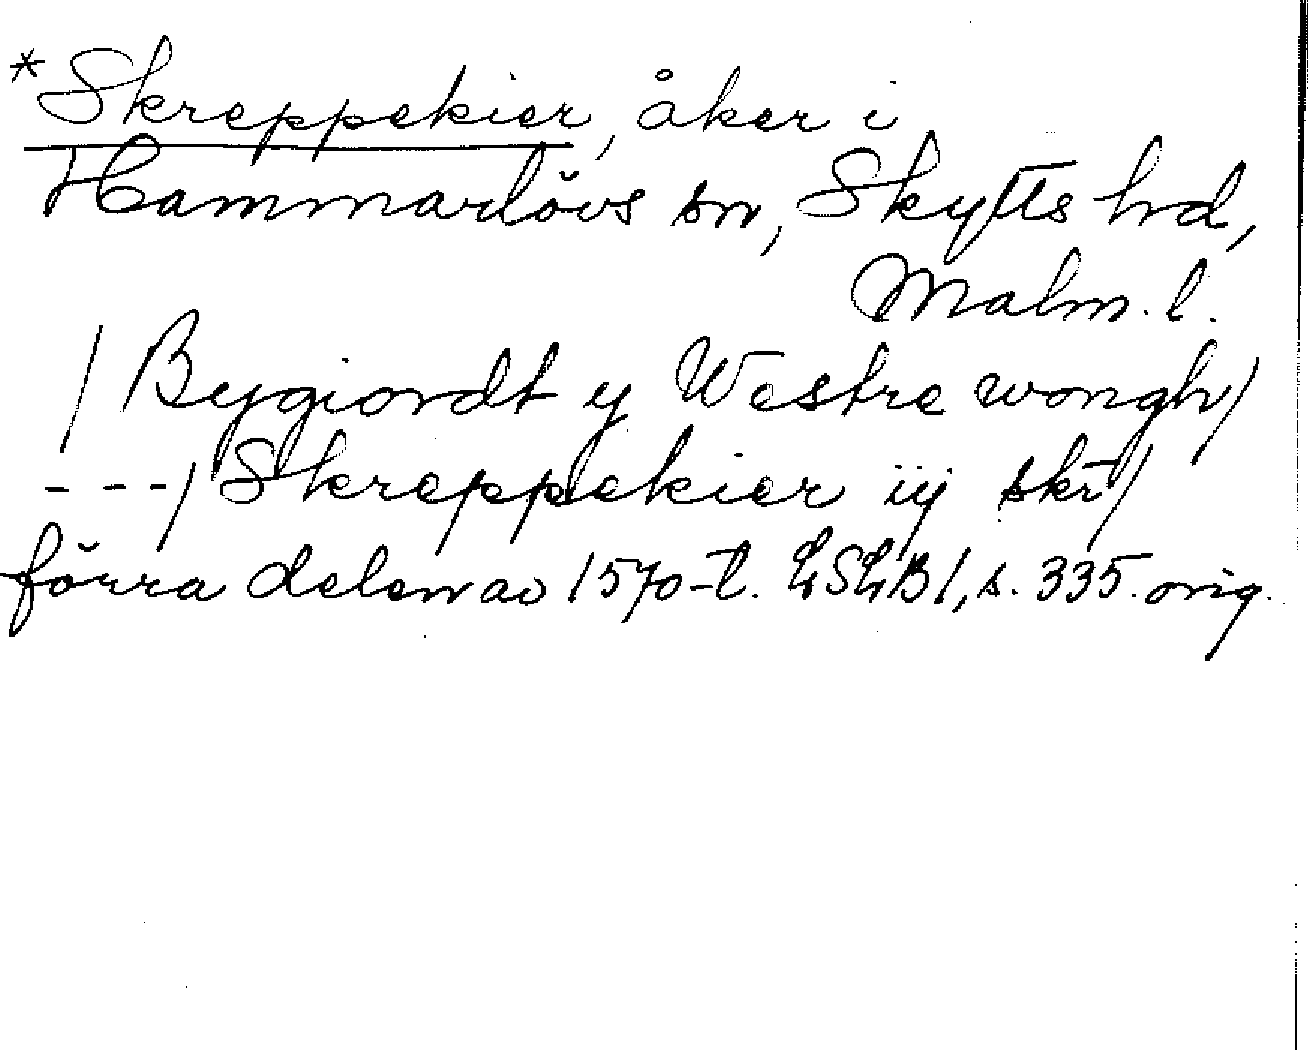 *Skreppekier, åker i
Hammarlövs sn, Skytts hd,
Malm. l.
/ Bygiordt y Westre wongh/
---/ Skreppekier iij skr̄/
förra delen av 1570-t. LSLB 1, s. 335. orig.